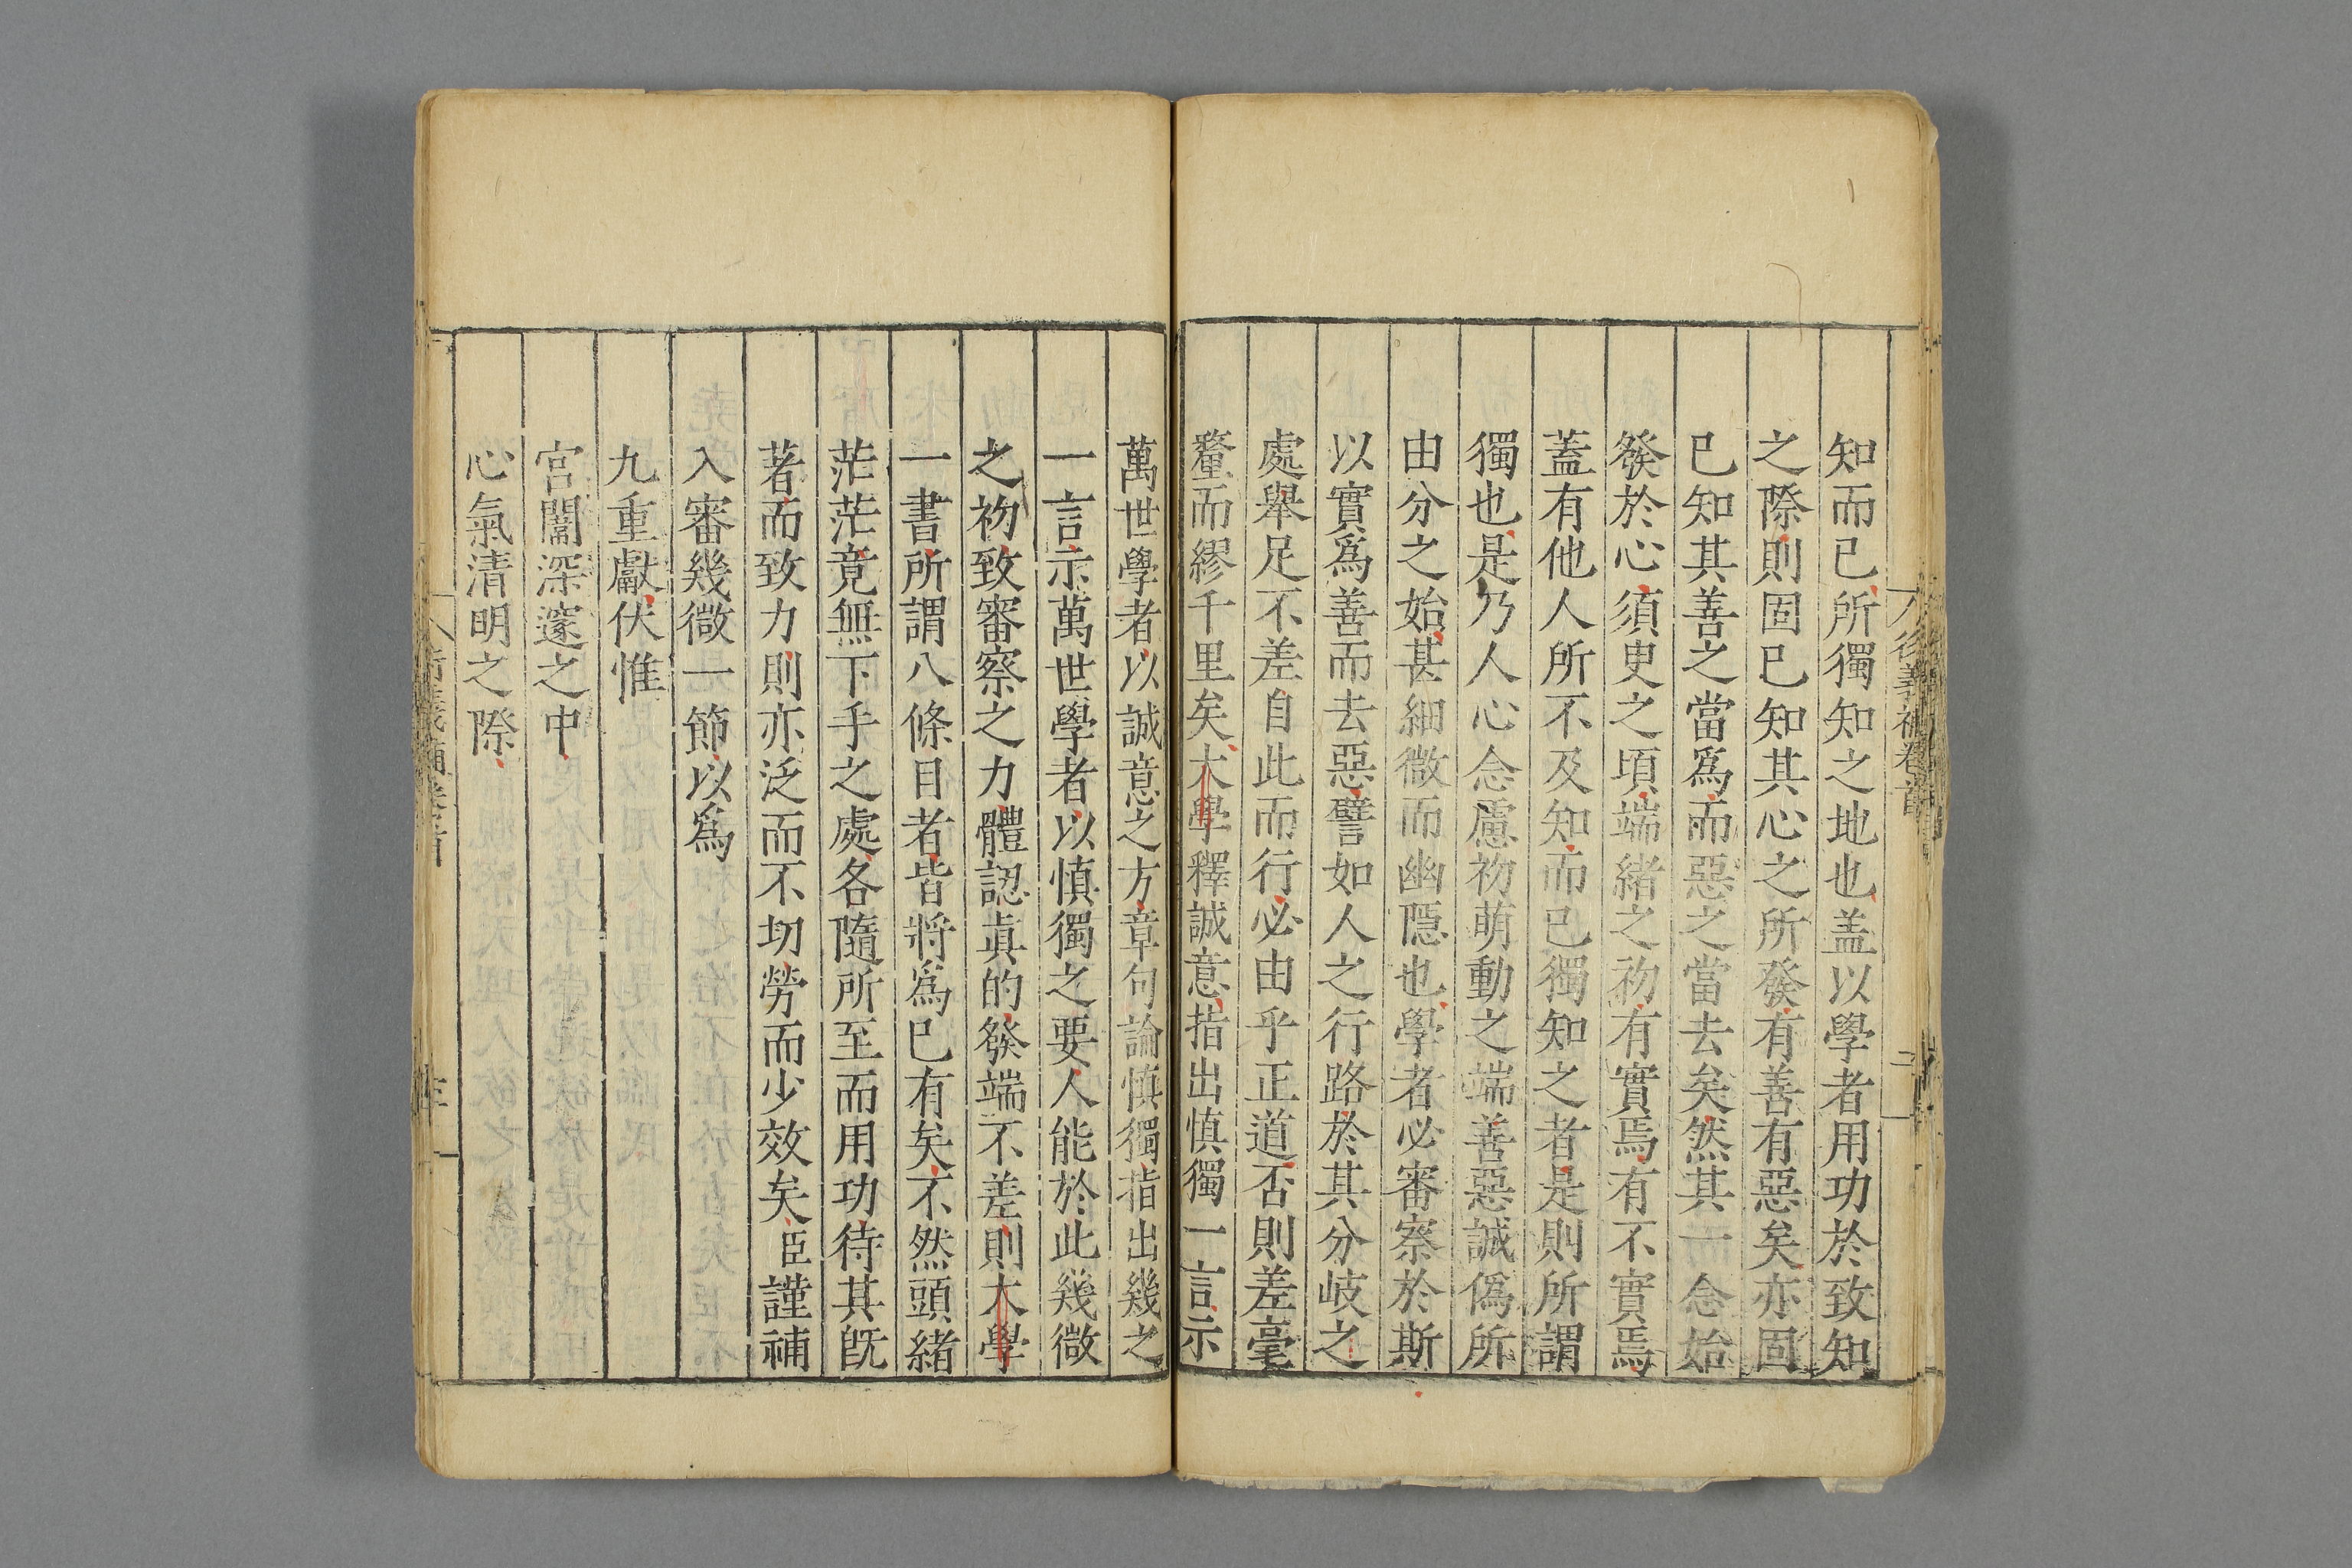 後義補卷首
二
知而已所獨知之地也盖以學者用功於致知
之際則固已知其心之所發有善有惡矣亦固
已知其善之當爲而惡之當去矣然其一念始
發於心須臾之頃端緒之初有實焉有不實焉
蓋有他人所不及知而已獨知之者是則所謂
獨也是乃人心念慮初萌動之端善惡誠偽所
由分之始甚細微而幽隠也學者必審察於斯
以實爲善而去惡譬如人之行路於其分岐之
處舉足不差自此而行必由乎正道否則差毫
釐而繆千里矣大學釋誠意指出慎獨一言示
萬世學者以誠意之方章句論慎獨指出幾之
一言示萬世學者以慎獨之要人能於此幾微
之初致審察之力體認眞的發端不差則大學
一書所謂八條目者皆將爲已有矣不然頭緒
茫茫竟無下手之處各隨所至而用功待其既
著而致力則亦泛而不切勞而少效矣臣謹補
入審幾微一節以爲
九重獻伏惟
宮闈深邃之中
心氣清明之際